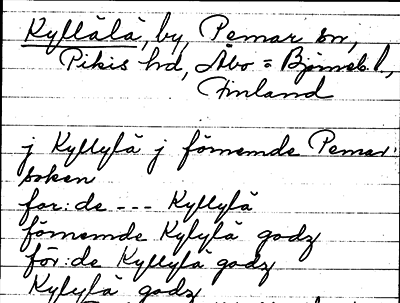 Kyllälä, by, Pemar sn,
Pikis hd, Åbo = Björneb. l,
Finland
j Kyllylä j förnemde Pemar
soken
for:de --- Kyllylä
förnemde Kylylä godz
för:de Kyllylä godz
Kylylä godz